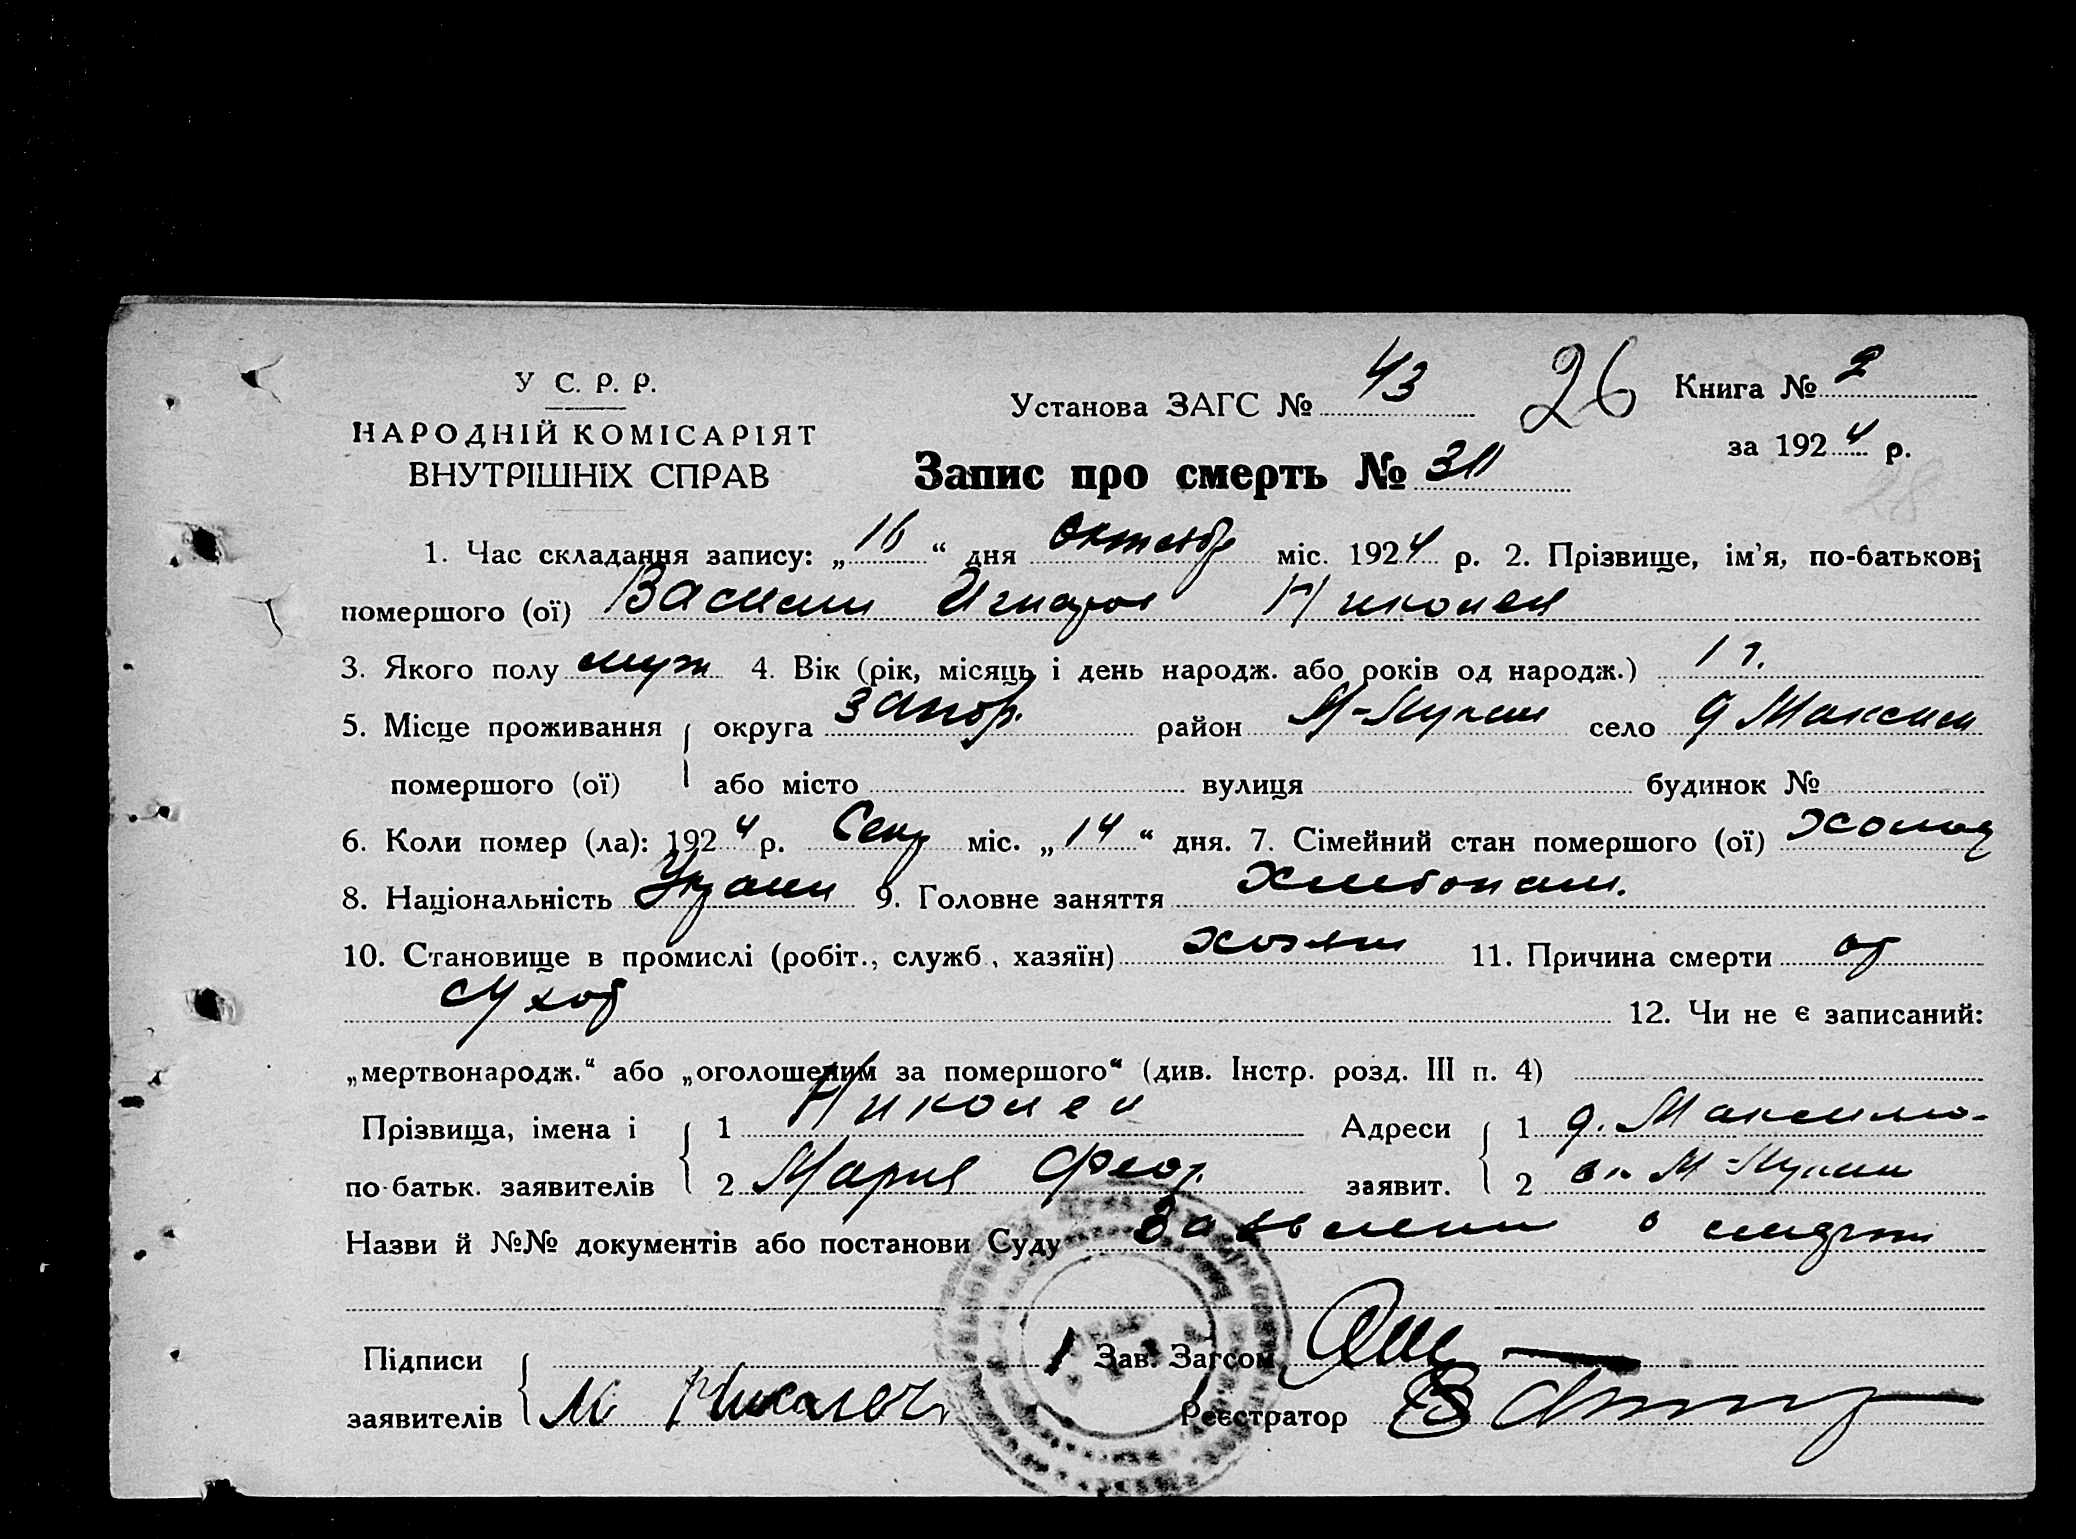 У С. Р. Р.
НАРОДНІЙ КОМІСАРІЯТ
ВНУТРІШНІХ СПРАВ
Установа ЗАГС № 43
26
Книга № 2
за 1924 р.
28
Запис про смерть № 311
1. Час складання запису: „16“ дня октябр міс. 1924 р. 2. Прізвище, ім'я, по-батькові
помершого (ої) Васили Николен
3. Якого полу муж 4. Вік (рік, місяць і день народж. або років од народж.) 1 г.
5. Місце проживання округа Запор. район село д Максим
помершого (ої) або місто вулиця будинок №
6. Коли помер (ла): 1924 р. Сен міс. „14“ дня. 7. Сімейний стан помершого (ої) холос
8. Національність Украин 9. Головне заняття Хлебопаш.
10. Становище в промислі (робіт., служб., хазяїн) хозяин 11. Причина смерти от
12. Чи не є записаний:
„мертвонародж.“ або „оголошеним за померщого“ (див. Інстр. розд. III п. 4)
Прізвища, імена і 1 Николен Адреси 1 д. Максимо-
по-батьк. заявителів 2 Мария Феод. заявит. 2
Назви й №№ документів або постанови Суду Заявлени о смерти
Підписи Зав. Загсом
заявителів М Реєстратор